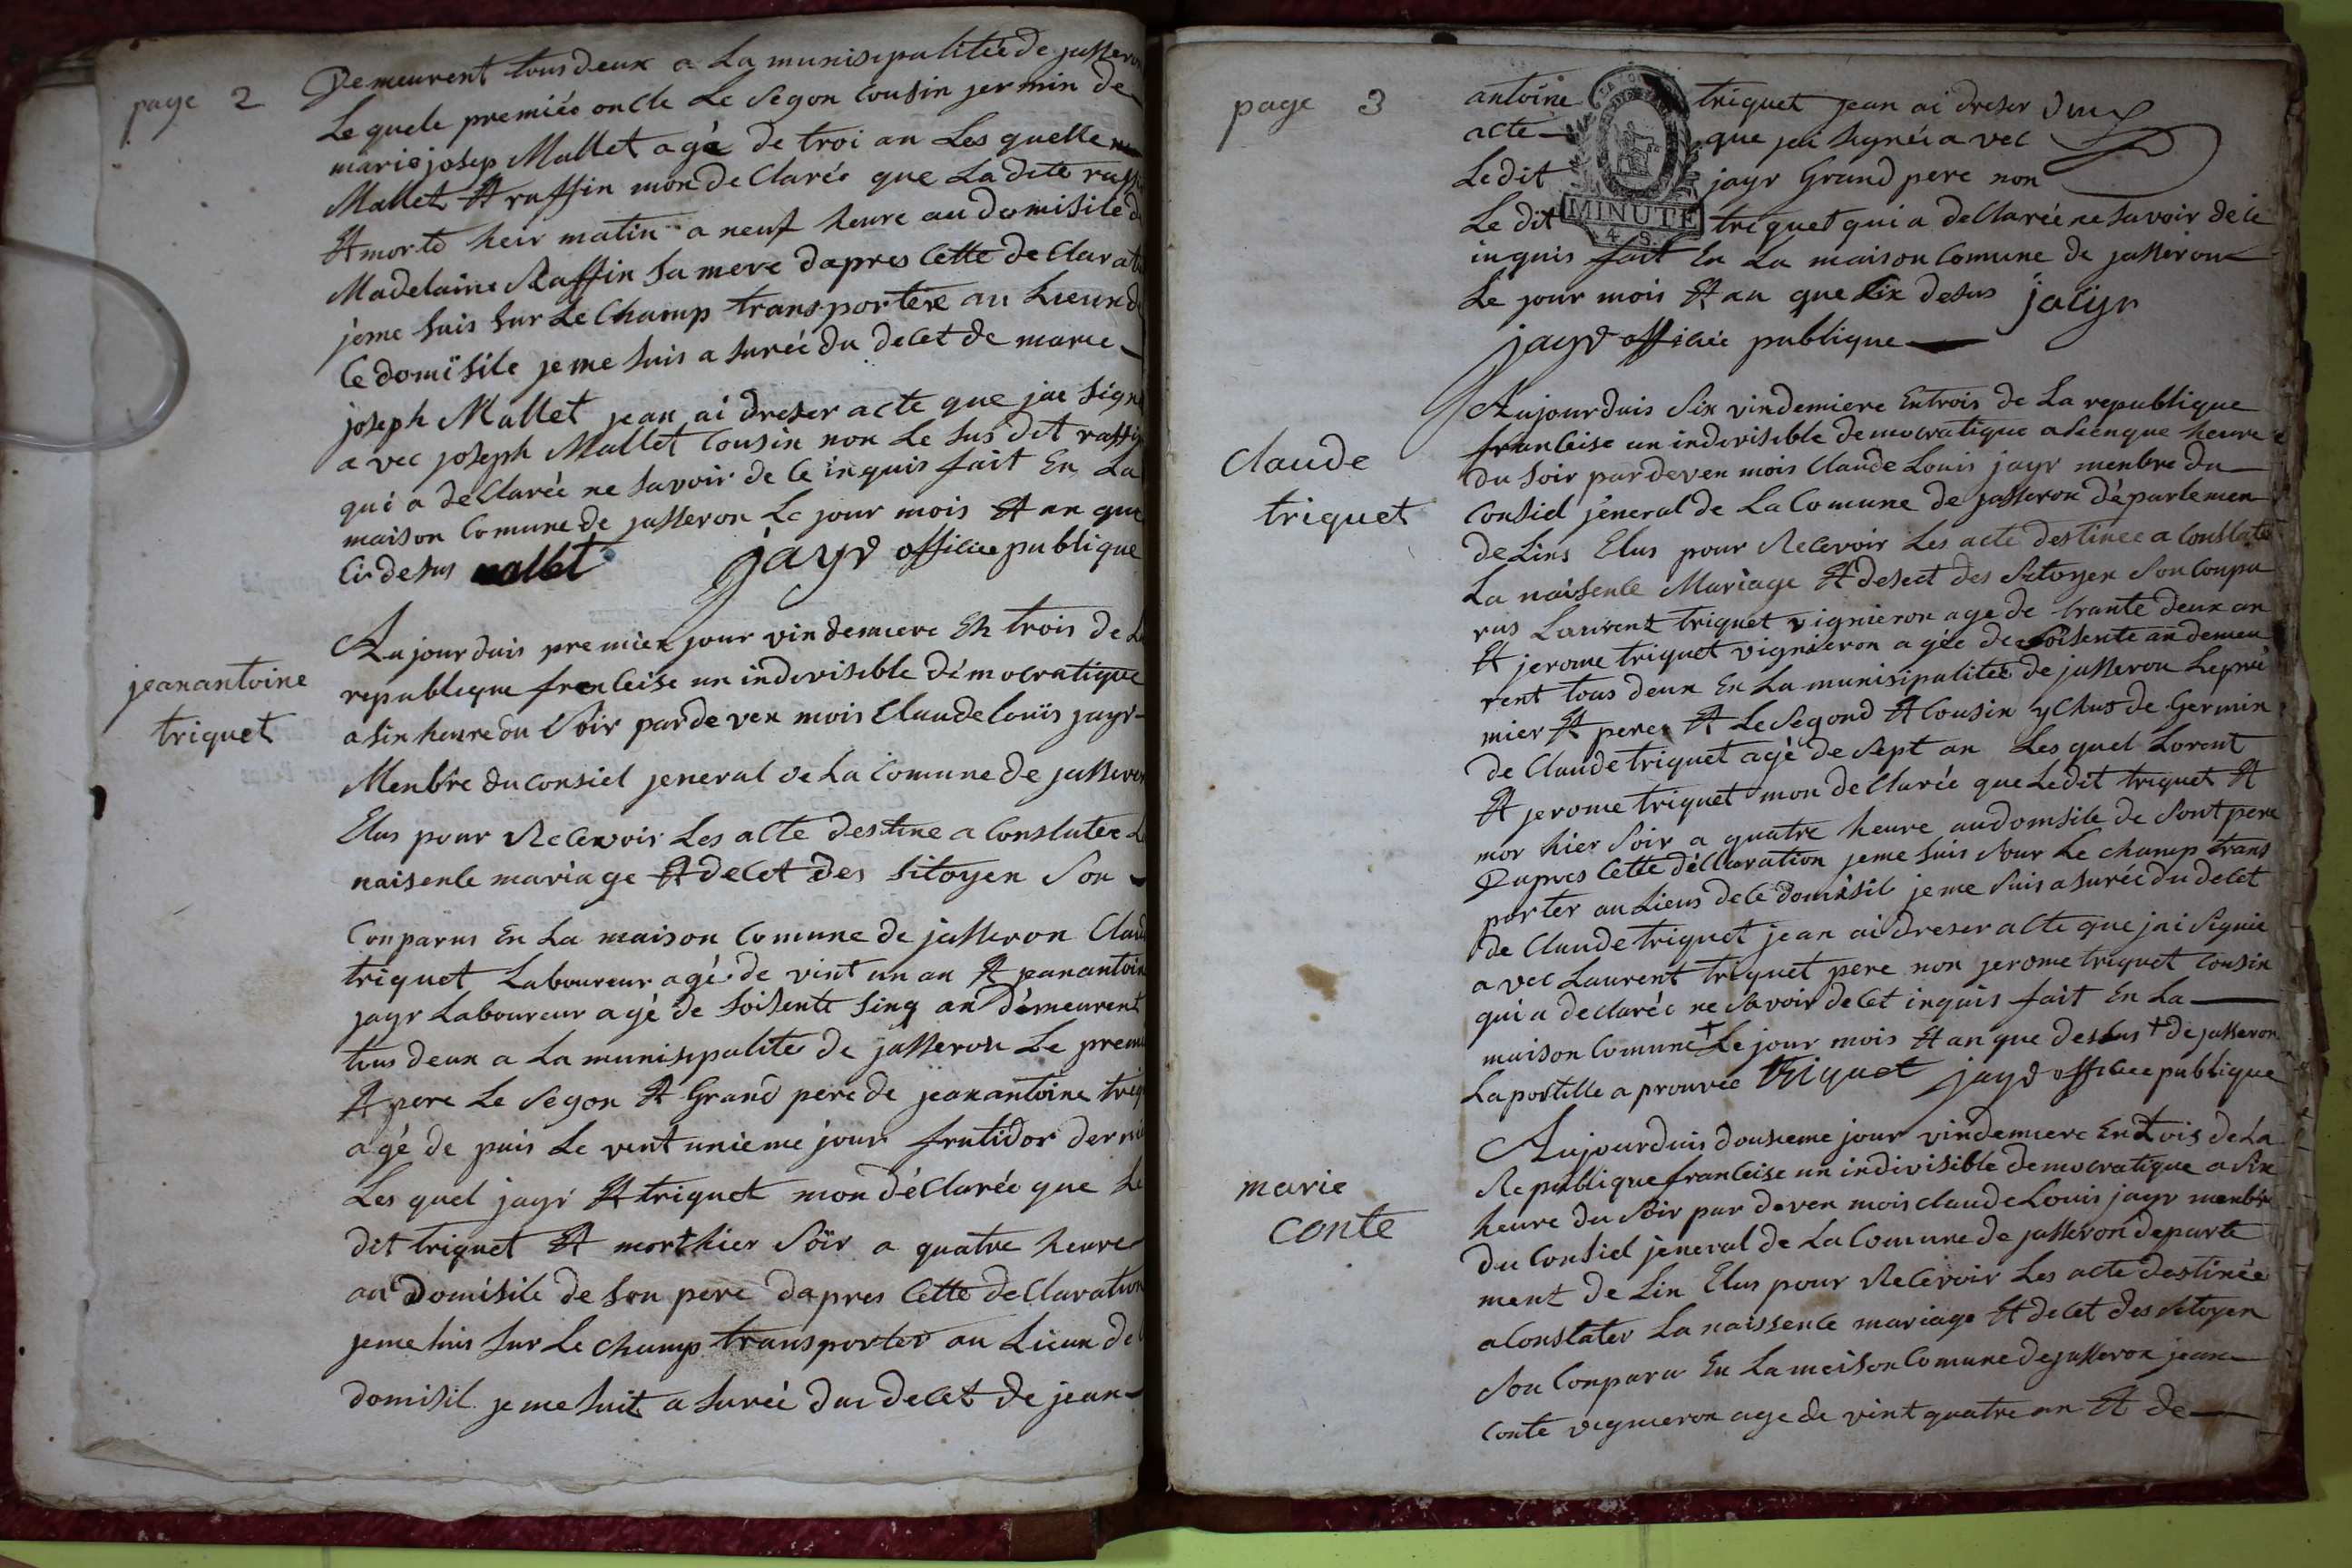 page 2
Demeurent tous deux a La munisipalitée de jasseron
Le quele premiée oncle Le Segon Cousin jermin de
marie josep Mallet agé de troi an Les quelle
Mallet Et raffin mon de Clarée que La dite
Et morte heir matin a neuf heure au domisile
Madelaine Raffin Sa mere dapres Cette de Clarati
jeme suis sur Le Champ transportere au Lieux de
Ce domisile je me suis a surée du decet de marie
joseph Mallet jean ai dreser acte que jai signé
a vec joseph Mallet Cousin non Le sus dit raffin
qui a de Clarée ne savoir de Ce inquis fait En La
maison Comune de jasseron Le jour mois Et an que
Ci desus mallet jayr officiee publique
jeanantoine
triquet
Aujourduis premier jour vindemiere En trois de La
republique frenceise un indivisible démocratique
a six heure du Soir par de ven mois Claude louis jayr
Menbre du Consiel jeneral de La Comune de jasseron
Elus pour Recevoir Les acte destine a Constater La
naisence mariage Et decet des Sitoyen Son
Conparus En La maison Comune de jasseron Claude
triquet Laboureur agé de vint un an Et jeanantoine
jayr Laboureur agé de soisente sinq an démeurent
tous deux a La munisipalite de jasseron Le premi
Et pere Le Segon Et Grand pere de jeanantoine triq
agé de puis Le vint unieme jour frutidor derni
Les quel jayr Et triquet mon déClarée que Le
dit triquet Et mort hier Soir a quatre heure
au Domisile de son pere dapres Cette deClaration
jeme suis sur Le champ transporter au Lieux de
domisil je me suit a surée du decet de jean
page 3
antoine triquet jean ai dreser
acte que jai signée a vec
Le dit jayr Grand pere non
Le dit triquet qui a deClarée ne savoir de Ce
MINUTE
4. S.
inquis fait En La maison Comune de jasseron
Le jour mois Et an que Six desus jayr
jayr officiée publique
claude
triquet
Aujourduis Six vindemiere En trois de La republique
franceise un indivisible democratique a Cenque heure
du soir pardeven mois Claude Louis jayr menbre du
Consiel jéneral de La Comune de jasseron départemen
de Lins Elus pour Recevoir Les acte destinee a Constaté
La naisence Mariage Et deset des Sitoyen Son Conpa
rus Laurent triquet vignieron age de trante deux an
Et jerome triquet vignieron agée de Soisente an demeu
rent tous deux En La munisipalitée de jasseron Le pre
mier Et pere Et Le Segond Et Cousin de Germin
de Claude triquet agé de Sept an Les quel Lorent
Et jerome triquet mon deClarée que Le dit triquet Et
mor hier Soir a quatre heure au domsile de Sont pere
Dapres Cette déClaration jeme suis Sour Le champ trans
porter au Lieus de Ce domisil je me suis a surée du decet
de Claude triquet jean ai dreser acte que jai Signée
a vec Laurent triquet pere non jerome triquet Cousin
qui a declarée ne Savoir de Cet inquis fait En La
maison Comune + Le jour mois Et an que desus + de jasseron
La postille a prouvée triquet jayr officiee publique
marie
conte
Aujourduis dousieme jour vindemiere En trois de La
Republique franceise un indivisible democratique a Six
heure du Soir par deven mois claude Louis jayr menbre
du Consiel jeneral de La Comune de jasseron departe
ment de Lin Elus pour Recevoir Les acte destinée
a Constater La naissence mariage Et decet des Sitoyen
Son Conparu En La meison Comune de jasseron jean
Conte vignieron age de vint quatre an Et de